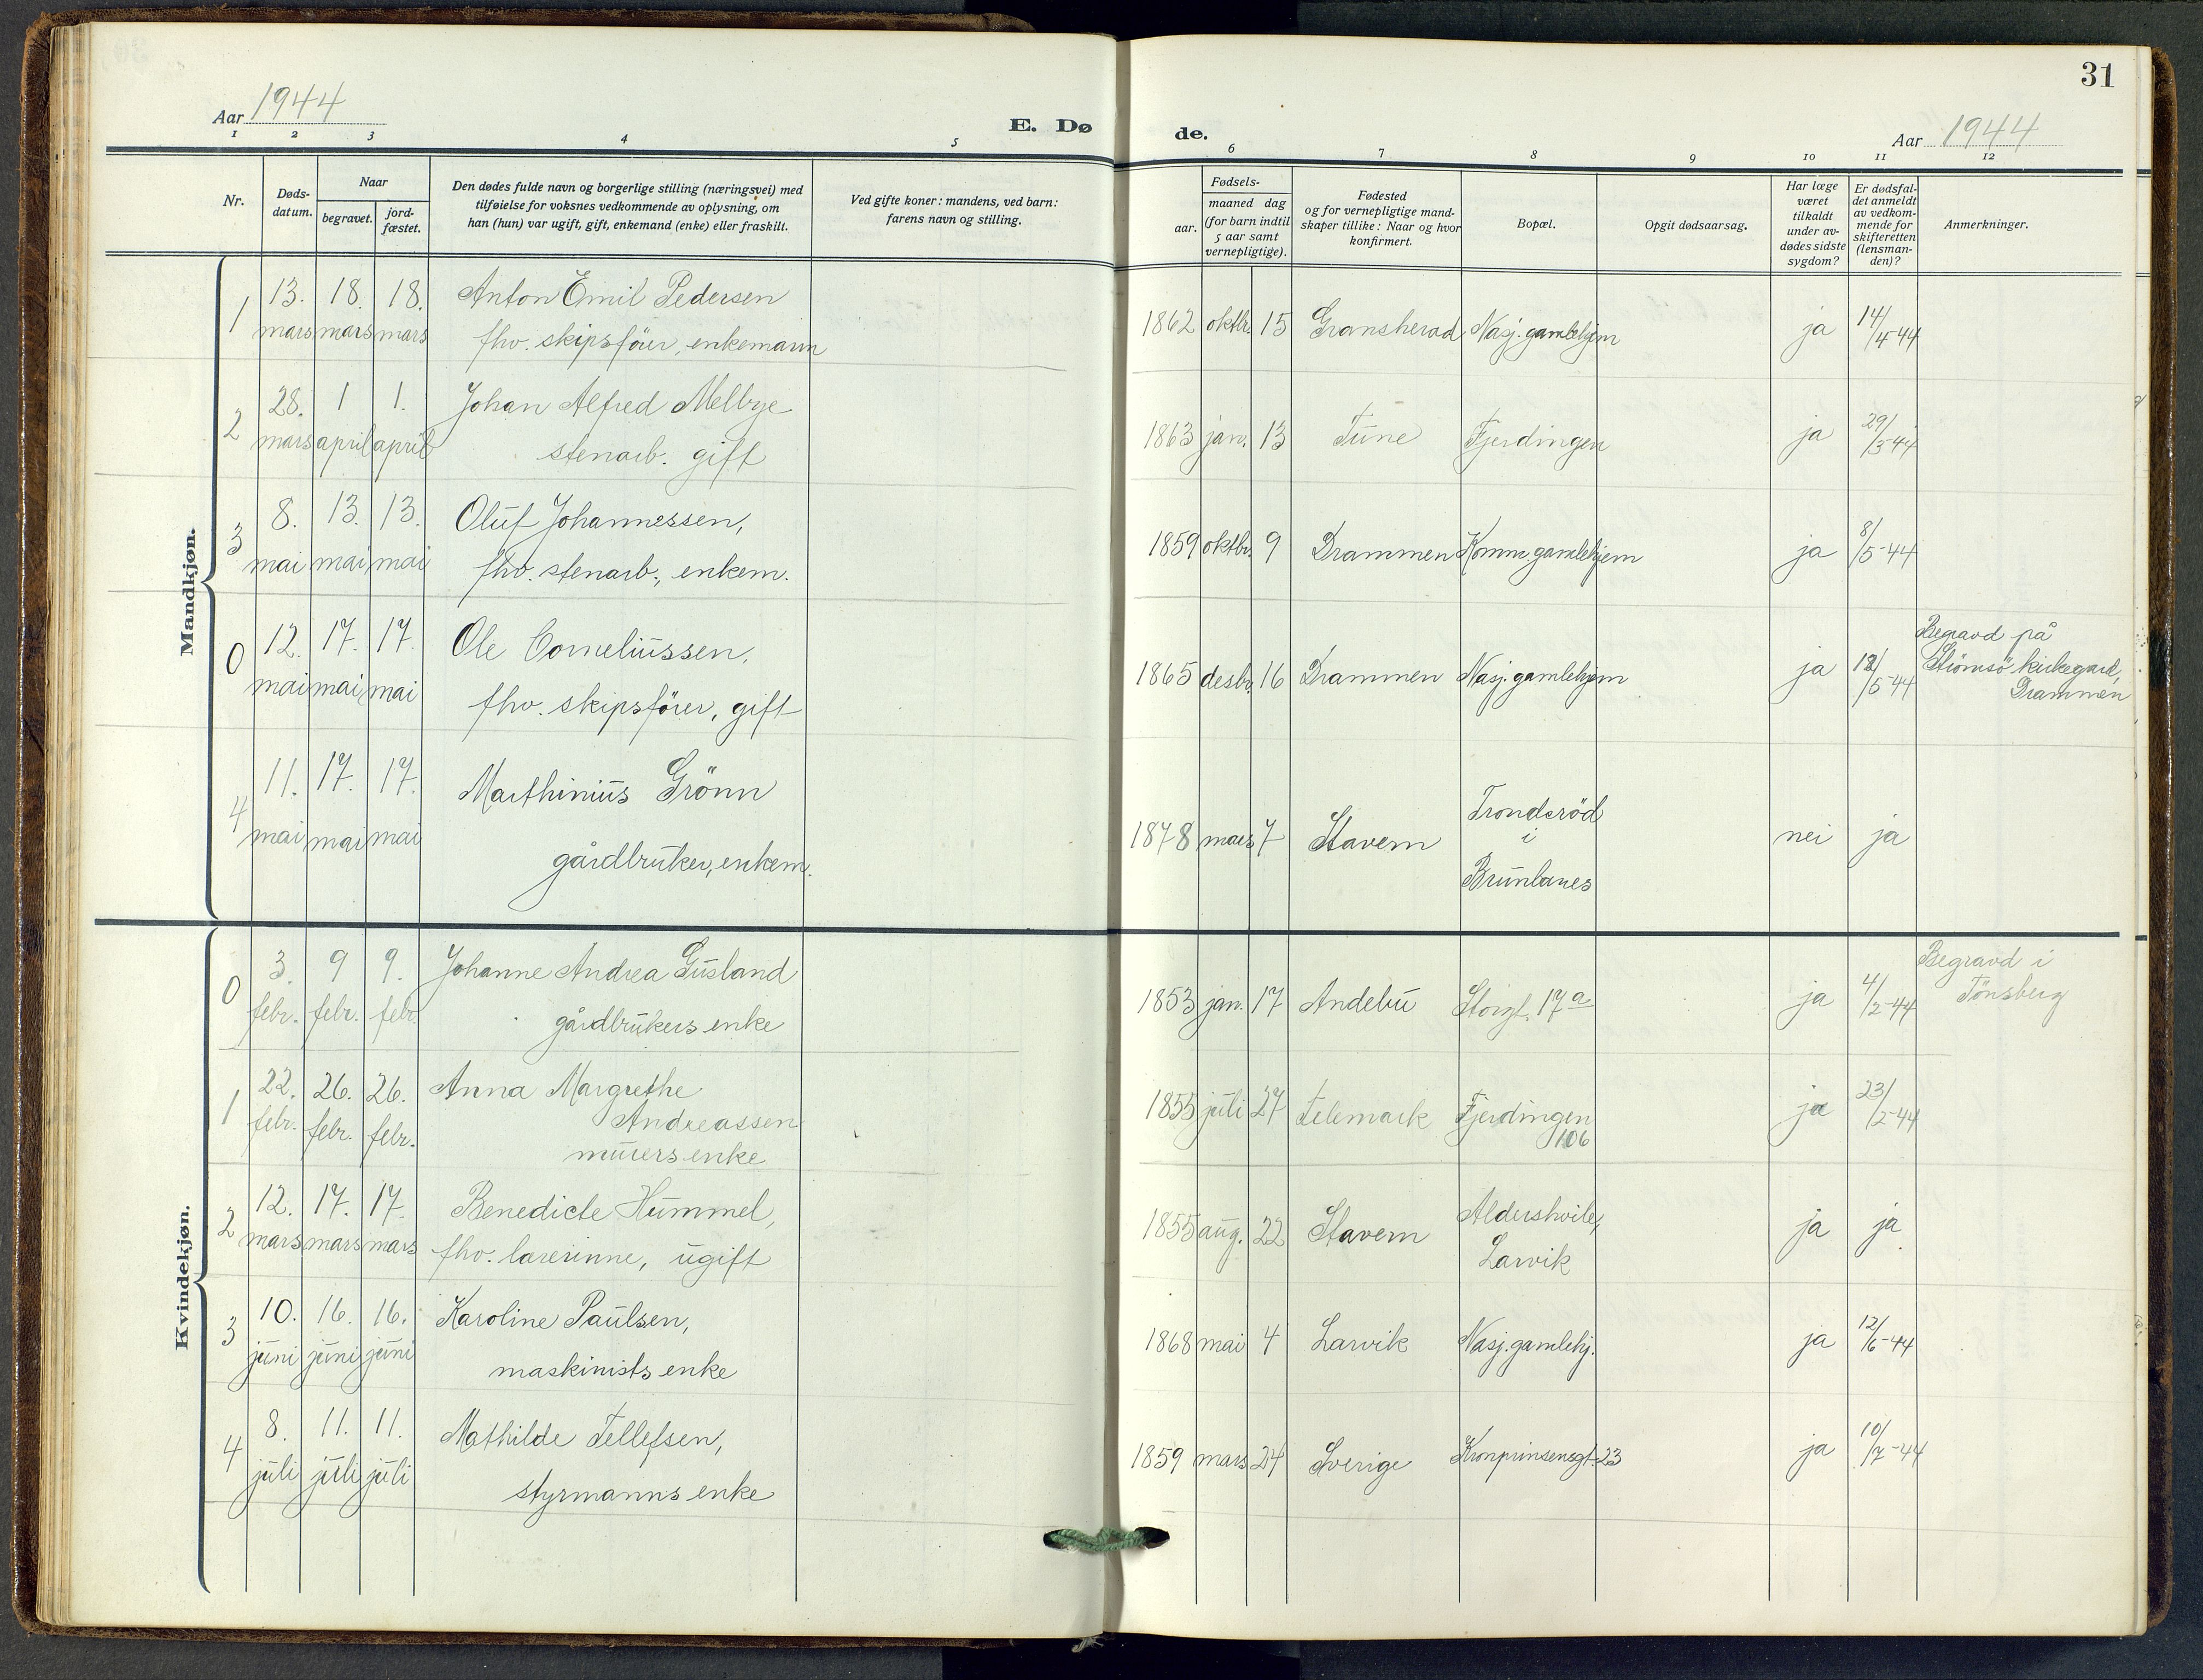 31
Aar 1944
E. Døde.
Aar 1944
1 2 3 4 5 6 7 8 9 10 11 12
Nr.
Døds-
datum.
Naar
begravet.
jord-
fæstet.
Den dødes fulde navn og borgerlige stilling (næringsvei) med
tilføielse for voksnes vedkommende av oplysning, om
han (hun) var ugift, gift, enkemand (enke) eller fraskilt.
Ved gifte koner: mandens, ved barn:
farens navn og stilling.
Fødsels-
aar.
maaned dag
(for barn indtil
5 aar samt
vernepligtige).
Fødested
og for vernepligtige mand-
skaper tillike: Naar og hvor
konfirmert.
Bopæl.
Opgit dødsaarsag.
Har læge
været
tilkaldt
under av-
dødes sidste
sygdom?
Er dødsfal-
det anmeldt
av vedkom-
mende for
skifteretten
(lensman-
den)?
Anmerkninger.
Mandkjøn.
1 13. mars 18. mars 18. mars Anton Emil Pedersen
fhv. skipsfører, enkemann
1862 oktbr. 15 Gransherad Nasj. gamlehjem ja 14/4-44
2 28. mars 1 april 1. april Johan Alfred Melbye
stenarb. gift
1863 jan. 13 Tune Fjerdingen ja 29/3-44
3 8. mai 13. mai 13. mai Oluf Johannessen,
fhv. stenarb., enkem.
1859 oktbr. 9 Drammen Komm. gamlehjem ja 8/5-44
0 12. mai 17. mai 17. mai Ole Corneliussen,
fhv. skipsfører, gift
1865 desbr. 16 Drammen Nasj. gamlehjem ja 12/5-44
Begravd på
Strömsö kirkegard,
Drammen
4 11. mai 17. mai 17. mai Marthinius Grönn
gårdbruker, enkem.
1878 mars 7 Stavern
Tronderöd
i
Brunlanes
nei ja
Kvindekjøn.
0 3. febr. 9 febr. 9. febr. Johanne Andrea Gusland
gårdbrukers enke
1853 jan. 17 Andebu Storgt. 17a ja 4/2-44
Begravd i
Tönsberg
1 22. febr. 26. febr. 26. febr. Anna Margrethe
Andreassen
murers enke
1855 juli 27 Telemark Fjerdingen
106
ja 23/2-44
2 12. mars 17. mars 17. mars Benedicte Hummel,
fhv. lærerinne, ugift
1855 aug. 22 Stavern Aldershvile,
Larvik
ja ja
3 10. juni 16. juni 16. juni Karoline Paulsen,
maskinists enke
1868 mai 4 Larvik Nasj. gamlehj. ja 12/6-44
4 8. juli 11. juli 11. juli Mathilde Tellefsen,
styrmanns enke
1859 mars 24 Sverige Kronprinsensgt. 23 ja 10/7-44